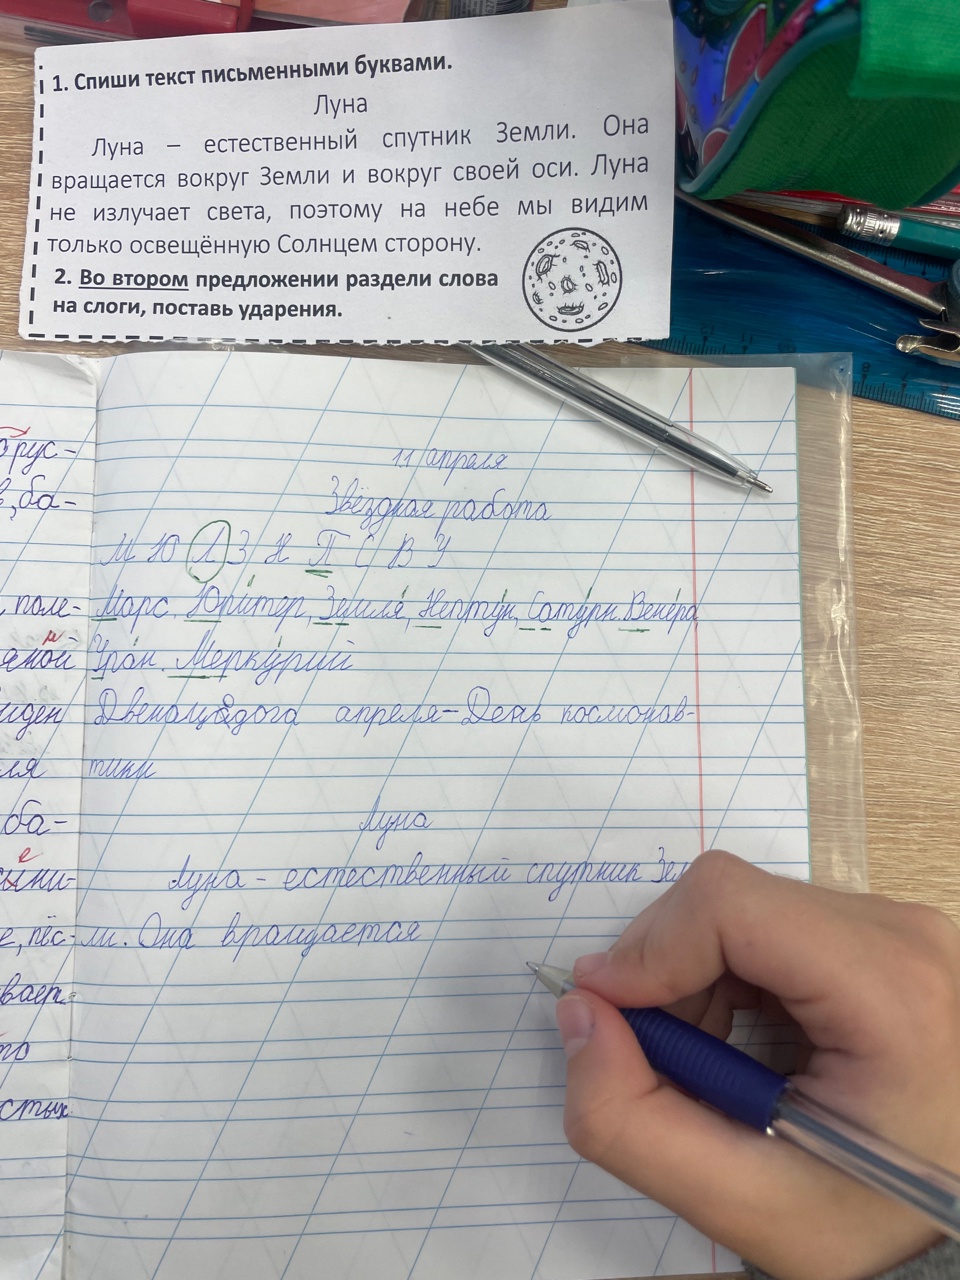 1. Спиши текст письменными буквами.
Луна
Луна – естественный спутник Земли. Она
вращается вокруг Земли и вокруг своей оси. Луна
не излучает света, поэтому на небе мы видим
только освещённую Солнцем сторону.
2. Во втором предложении раздели слова
на слоги, поставь ударения.
11 апреля
Звёздная работа
М Ю Л З Н П С В У
Марс, Юпитер, Земля, Нептун, Сатурн. Венера
Уран. Меркурий
апреля – День космонав-
тики
Луна
Луна – естественный спутник Зем
ли. Она вращается
рус-
ба-
поле-
ной
иден
ля
ба-
ни-
е, пёс-
вает-
то
стых